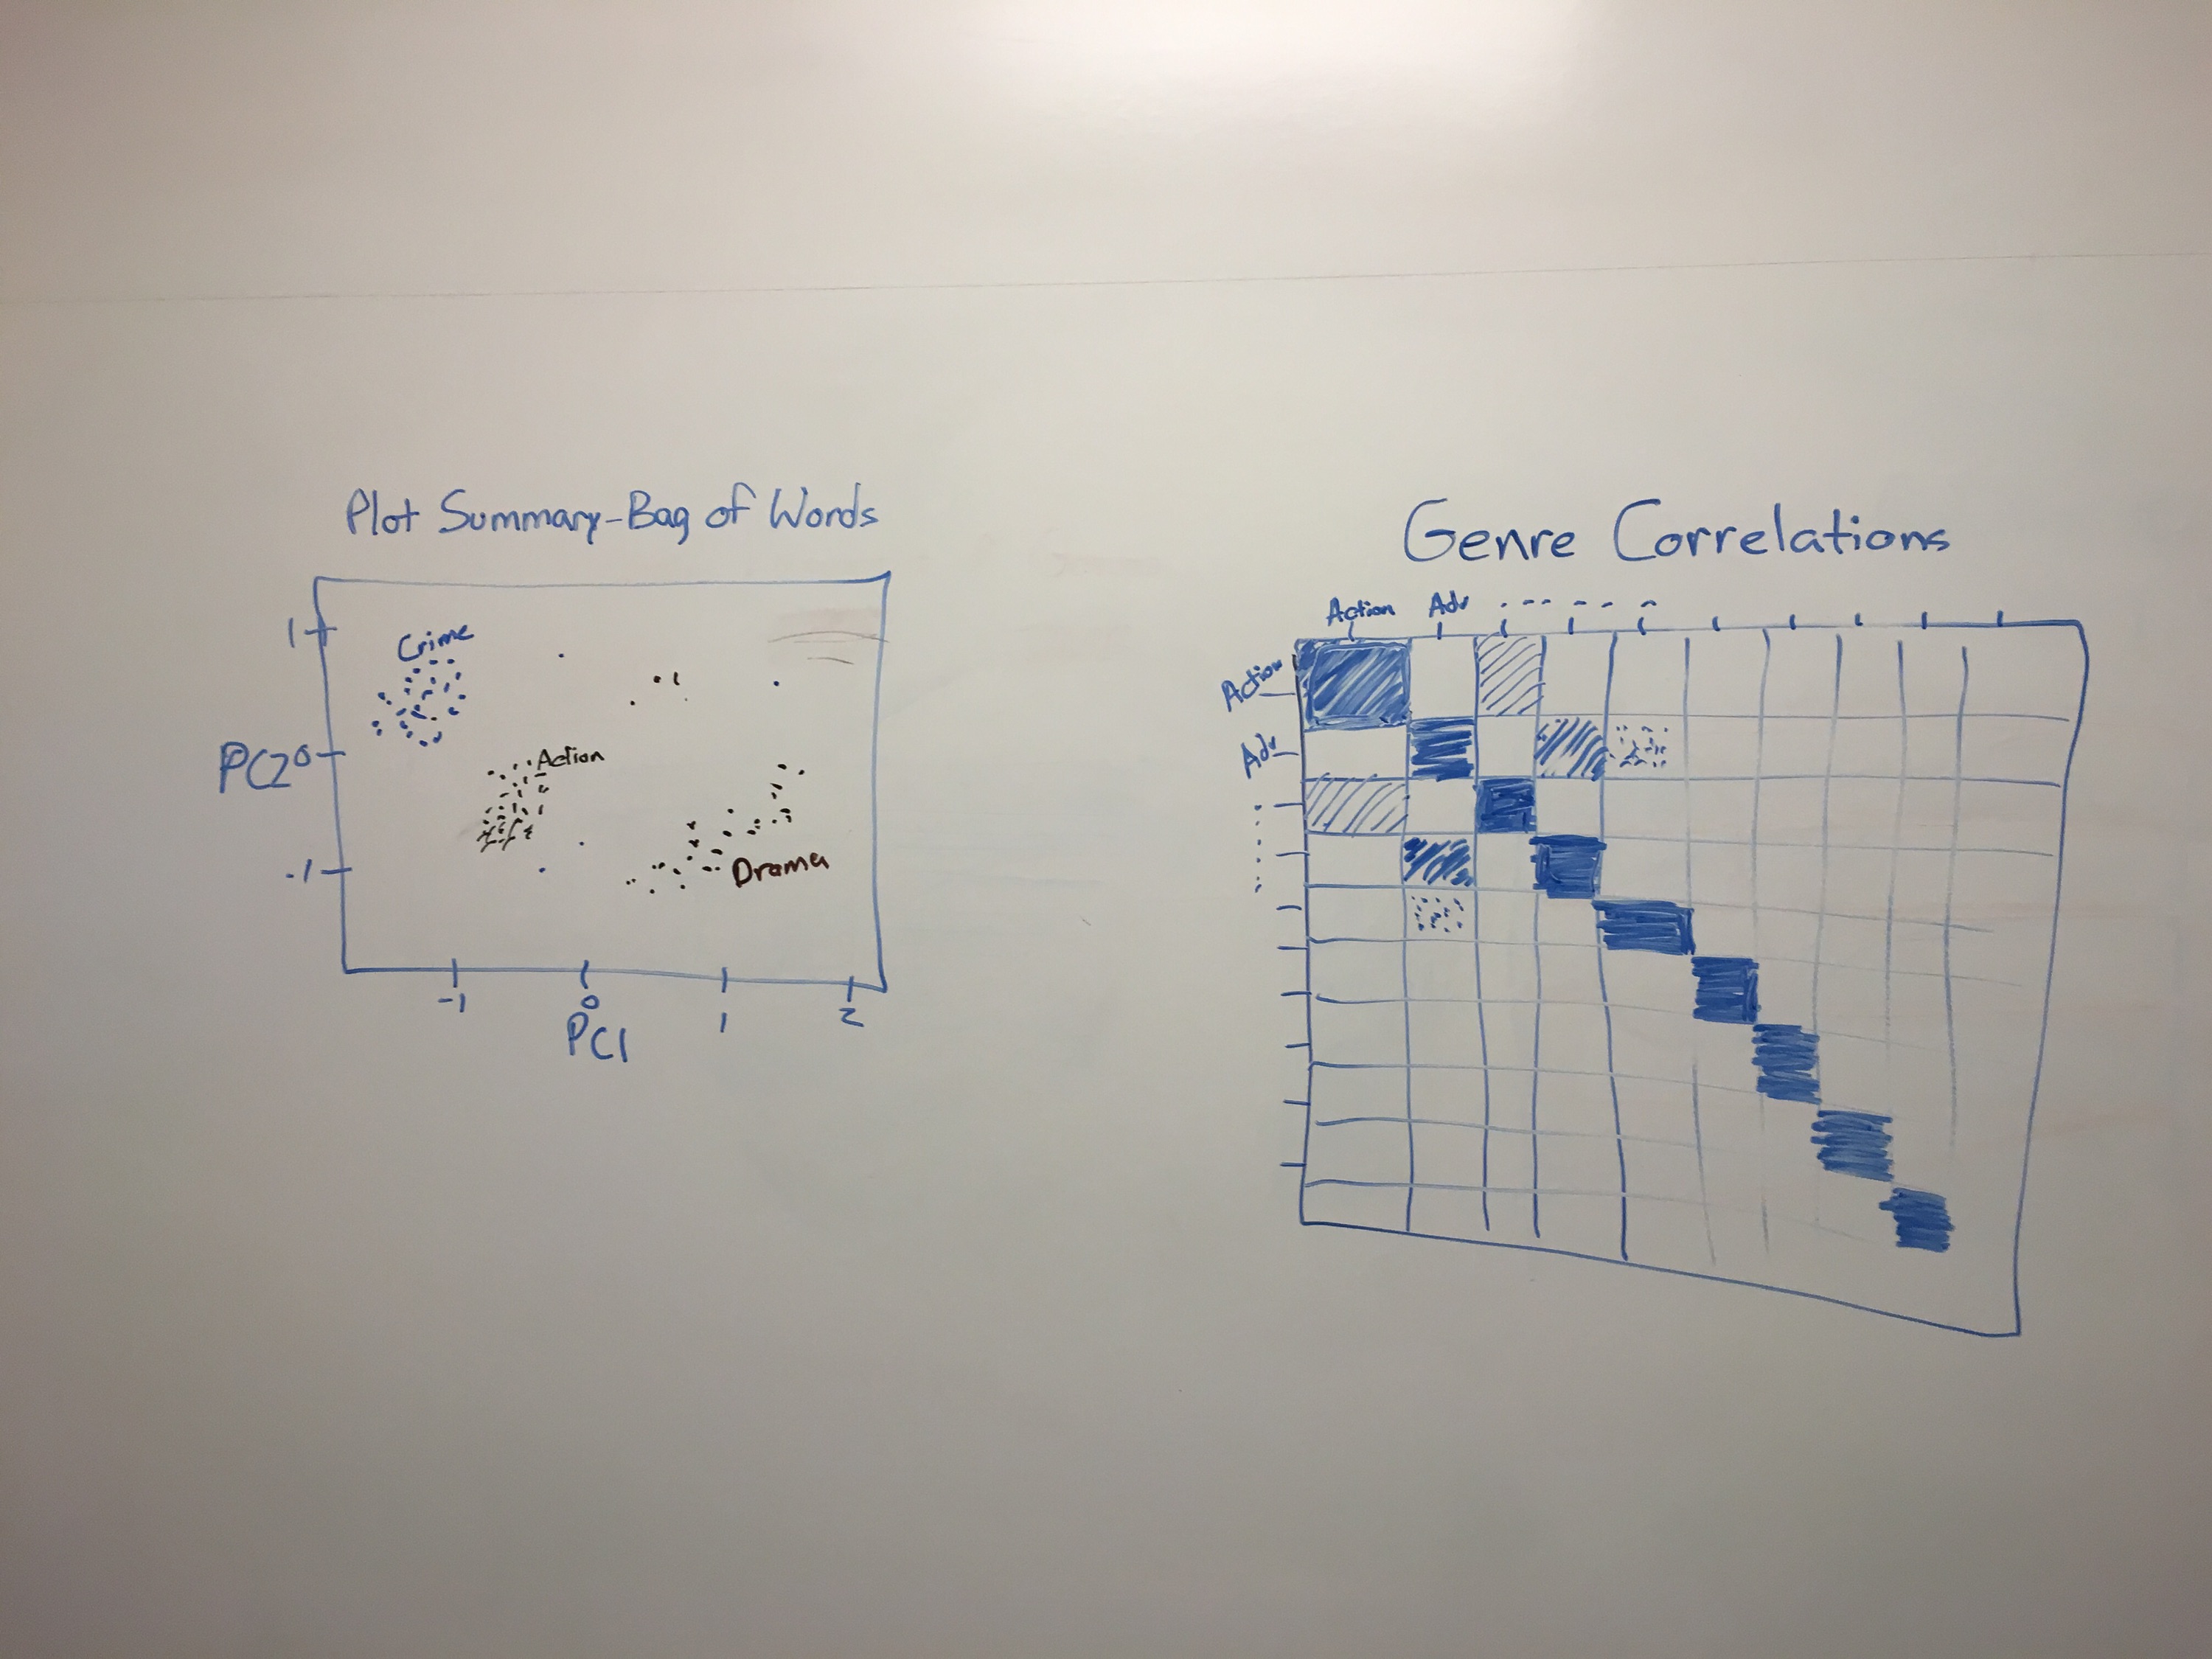 Plot Summary-Bag of Words
1
Crime
PC2 0
Action
-1
Drama
-1
0
1
2
PC1
Genre Correlations
Action Adv
Action
Adv